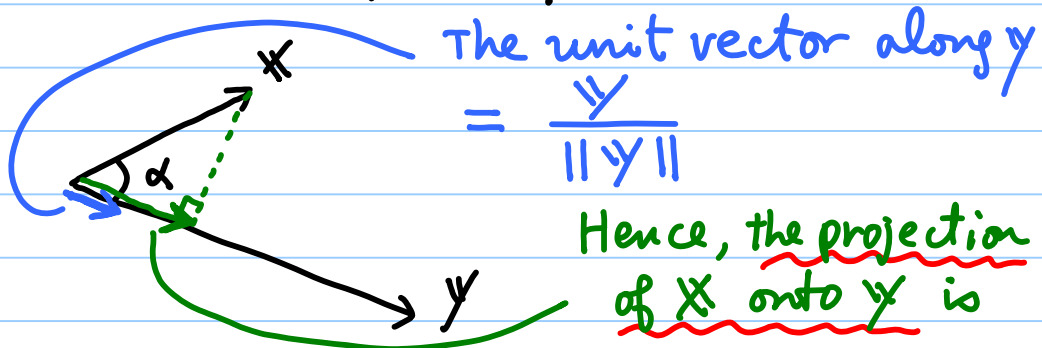 The unit vector along 𝕐
= 𝕐 / ||𝕐||
𝕏
α
Hence, the projection
of 𝕏 onto 𝕐 is
𝕐